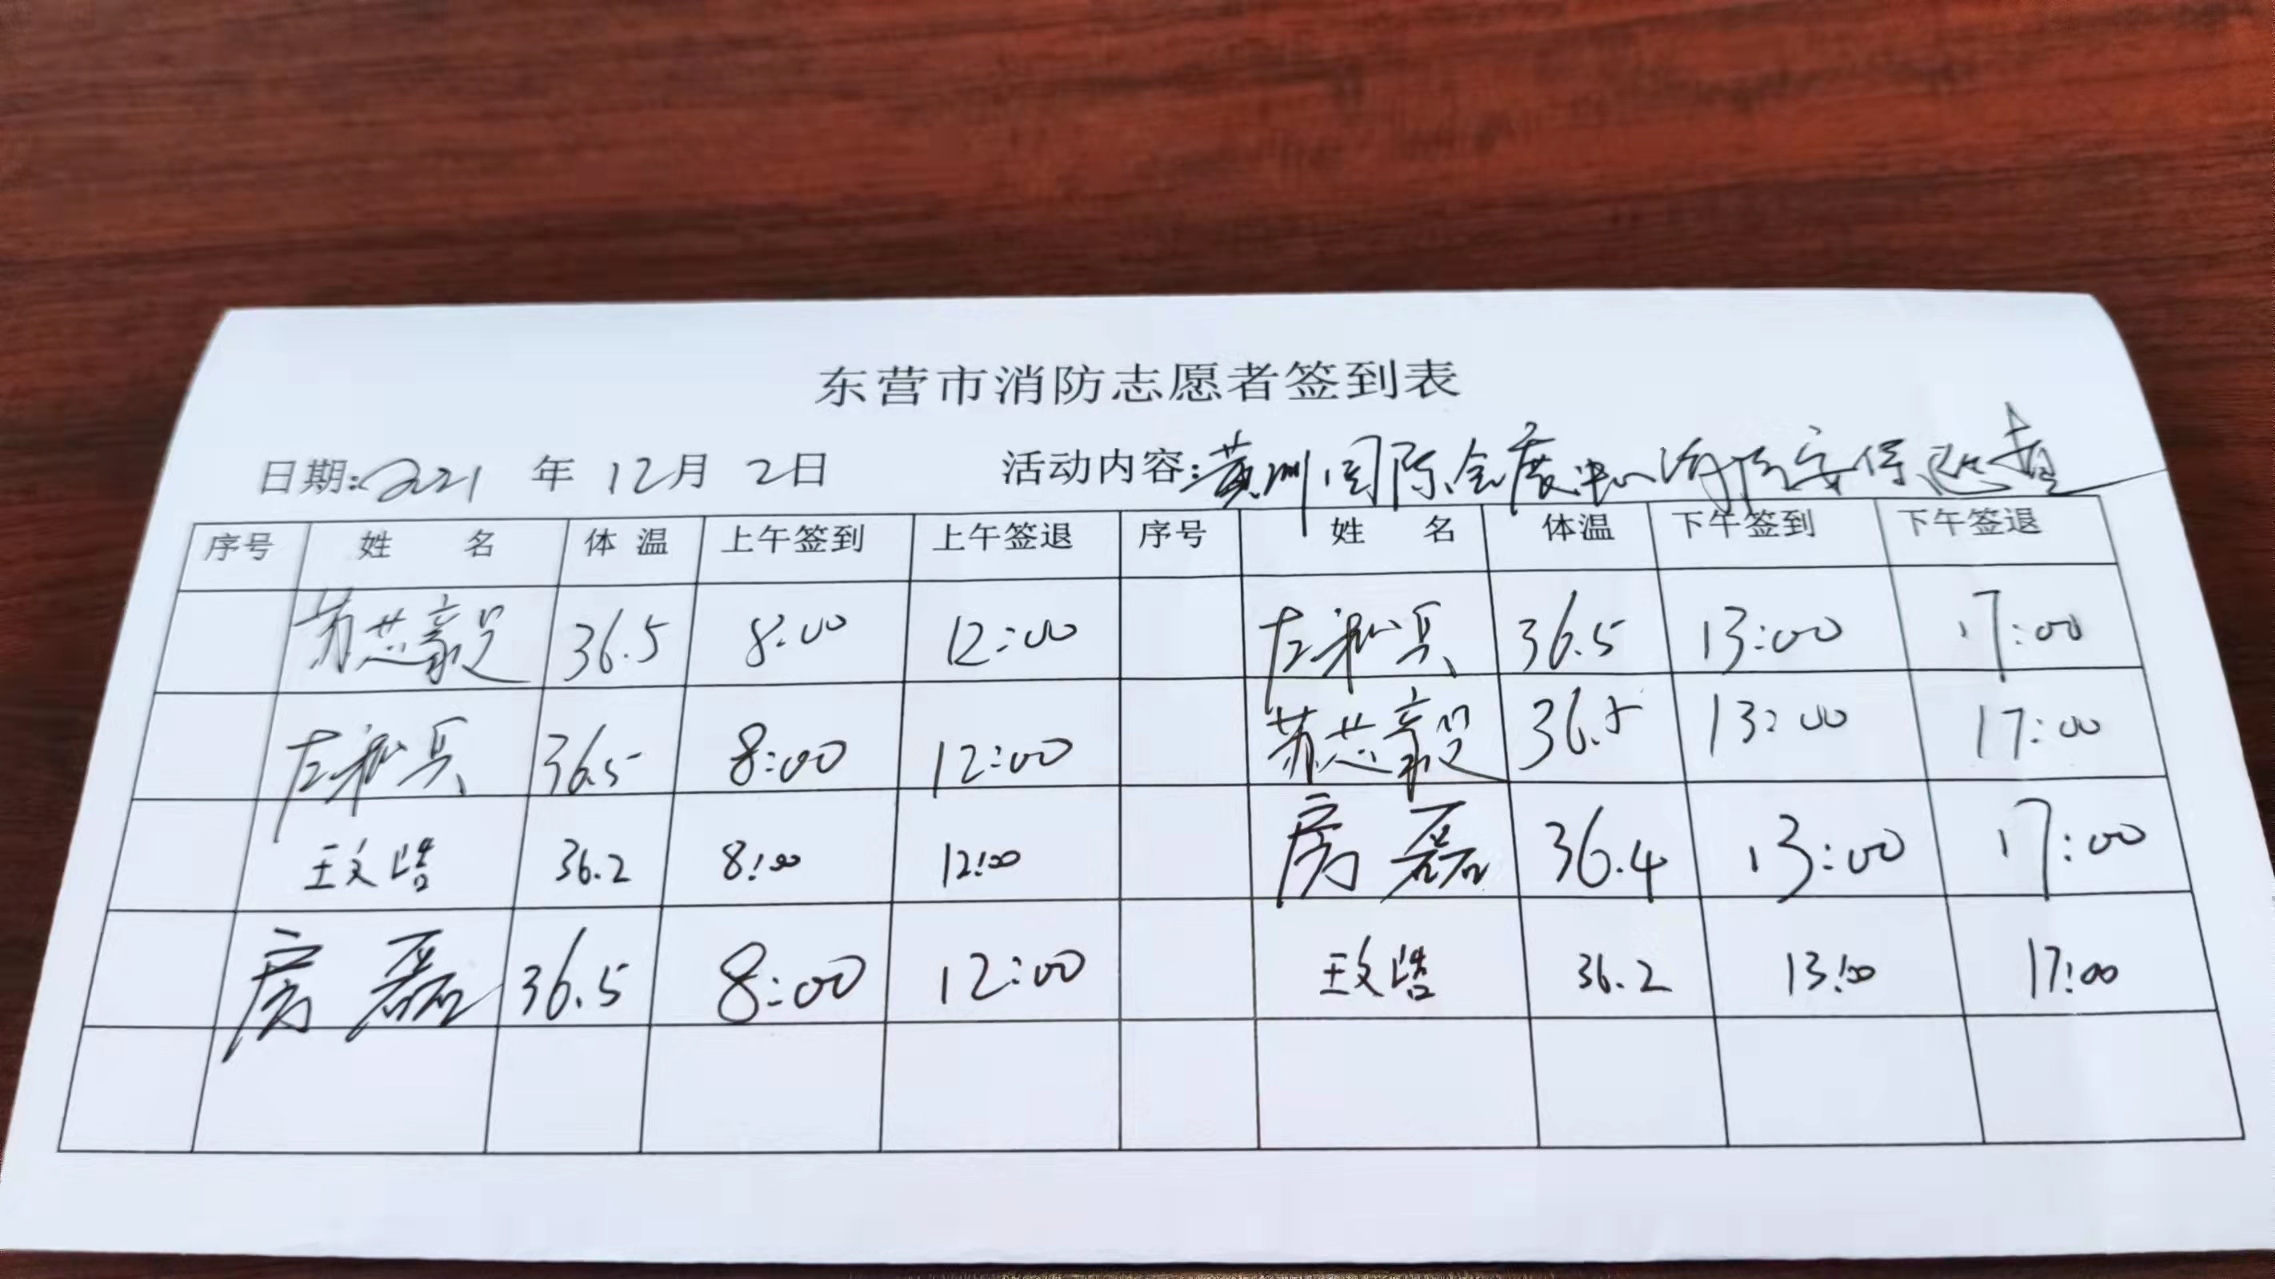 东营市消防志愿者签到表
日期:2021 年 12月 2日 活动内容:黄河国际会展中心消防安保巡查
序号 姓 名 体 温 上午签到 上午签退 序号 姓 名 体温 下午签到 下午签退
苏芯毅 36.5 8:00 12:00 左兵 36.5 13:00 17:00
左兵 36.5 8:00 12:00 苏芯毅 36.5 13:00 17:00
王文浩 36.2 8:00 12:00 房磊 36.4 13:00 17:00
房磊 36.5 8:00 12:00 王文浩 36.2 13:00 17:00